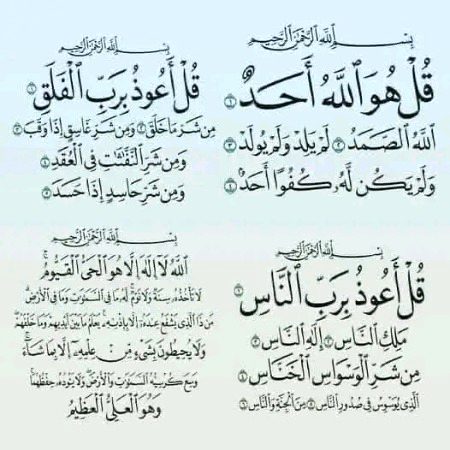 بِسْمِ ٱللَّهِ ٱلرَّحْمَٰنِ ٱلرَّحِيمِ
قُلْ هُوَ ٱللَّهُ أَحَدٌ ١
ٱللَّهُ ٱلصَّمَدُ ٢ لَمْ يَلِدْ وَلَمْ يُولَدْ ٣
وَلَمْ يَكُن لَّهُۥ كُفُوًا أَحَدٌۢ ٤
بِسْمِ ٱللَّهِ ٱلرَّحْمَٰنِ ٱلرَّحِيمِ
قُلْ أَعُوذُ بِرَبِّ ٱلْفَلَقِ ١
مِن شَرِّ مَا خَلَقَ ٢ وَمِن شَرِّ غَاسِقٍ إِذَا وَقَبَ ٣
وَمِن شَرِّ ٱلنَّفَّٰثَٰتِ فِى ٱلْعُقَدِ ٤
وَمِن شَرِّ حَاسِدٍ إِذَا حَسَدَ ٥
بِسْمِ ٱللَّهِ ٱلرَّحْمَٰنِ ٱلرَّحِيمِ
قُلْ أَعُوذُ بِرَبِّ ٱلنَّاسِ ١
مَلِكِ ٱلنَّاسِ ٢ إِلَٰهِ ٱلنَّاسِ ٣
مِن شَرِّ ٱلْوَسْوَاسِ ٱلْخَنَّاسِ ٤
ٱلَّذِى يُوَسْوِسُ فِى صُدُورِ ٱلنَّاسِ ٥ مِنَ ٱلْجِنَّةِ وَٱلنَّاسِ ٦
بِسْمِ ٱللَّهِ ٱلرَّحْمَٰنِ ٱلرَّحِيمِ
ٱللَّهُ لَآ إِلَٰهَ إِلَّا هُوَ ٱلْحَىُّ ٱلْقَيُّومُ ۚ
لَا تَأْخُذُهُۥ سِنَةٌ وَلَا نَوْمٌ ۚ لَّهُۥ مَا فِى ٱلسَّمَٰوَٰتِ وَمَا فِى ٱلْأَرْضِ ۗ
مَن ذَا ٱلَّذِى يَشْفَعُ عِندَهُۥٓ إِلَّا بِإِذْنِهِۦ ۚ يَعْلَمُ مَا بَيْنَ أَيْدِيهِمْ وَمَا خَلْفَهُمْ ۖ
وَلَا يُحِيطُونَ بِشَىْءٍ مِّنْ عِلْمِهِۦٓ إِلَّا بِمَا شَآءَ ۚ
وَسِعَ كُرْسِيُّهُ ٱلسَّمَٰوَٰتِ وَٱلْأَرْضَ ۖ وَلَا يَـُٔودُهُۥ حِفْظُهُمَا ۚ
وَهُوَ ٱلْعَلِىُّ ٱلْعَظِيمُ